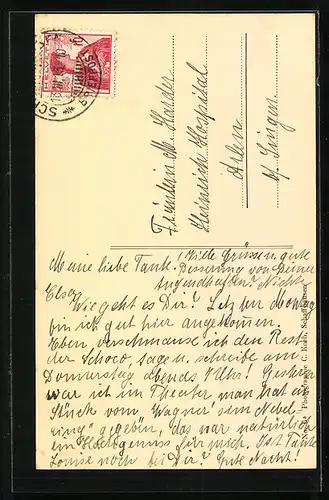 HELVETIA
SCHAFFHAUSEN
Fräulein M. Harder
Heinrich Hospital
Arlen
b/ Singen
Meine liebe Tante! Viele Grüsse u. gute
Besserung von Deiner
Elsa
Wie geht es Dir? Letzten Montag
bin ich gut hier angekommen.
Eben verschmause ich den Rest
der Schoco, sage u. schreibe am
Donnerstag abends Uhr! Gestern
war ich im Theater man hat ein
Stück vom "Wagner"
gegeben, das war natürlich
ein Hochgenuss für mich. Ist Tante
Louise noch bei Dir? Gute Nacht!
Photoverlag C. Koch, Schaffhausen